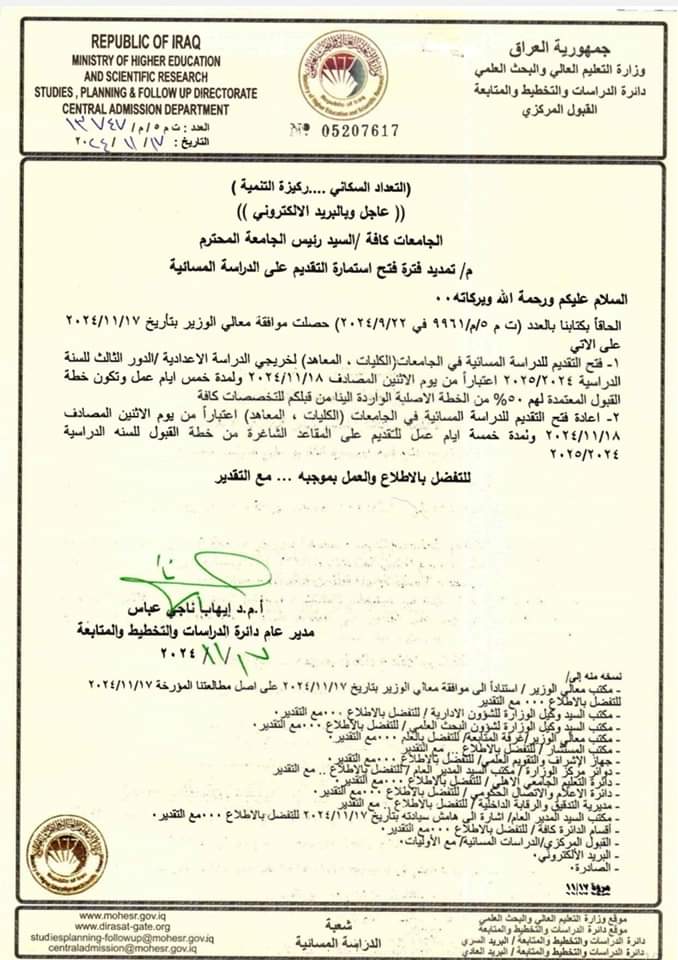 REPUBLIC OF IRAQ
MINISTRY OF HIGHER EDUCATION
AND SCIENTIFIC RESEARCH
STUDIES , PLANNING & FOLLOW UP DIRECTORATE
CENTRAL ADMISSION DEPARTMENT
العدد : ت م ٥/م/ ١٣٧٤٧
التاريخ : ١٧ / ١١ / ٢٠٢٤
Nº 05207617
جمهورية العراق
وزارة التعليم العالي والبحث العلمي
دائرة الدراسات والتخطيط والمتابعة
القبول المركزي
(التعداد السكاني ....ركيزة التنمية )
(( عاجل وبالبريد الالكتروني ))
الجامعات كافة /السيد رئيس الجامعة المحترم
م/ تمديد فترة فتح استمارة التقديم على الدراسة المسائية
السلام عليكم ورحمة الله وبركاته٠٠
الحاقاً بكتابنا بالعدد (ت م ٥/م/٩٩٦١ في ٢٠٢٤/٩/٢٢) حصلت موافقة معالي الوزير بتأريخ ٢٠٢٤/١١/١٧
على الاتي
١- فتح التقديم للدراسة المسائية في الجامعات(الكليات ، المعاهد) لخريجي الدراسة الاعدادية /الدور الثالث للسنة
الدراسية ٢٠٢٥/٢٠٢٤ اعتباراً من يوم الاثنين المصادف ٢٠٢٤/١١/١٨ ولمدة خمس ايام عمل وتكون خطة
القبول المعتمدة لهم ٥٠% من الخطة الاصلية الواردة الينا من قبلكم للتخصصات كافة
٢- اعادة فتح التقديم للدراسة المسائية في الجامعات (الكليات ، المعاهد) اعتباراً من يوم الاثنين المصادف
٢٠٢٤/١١/١٨ ولمدة خمسة ايام عمل للتقديم على المقاعد الشاغرة من خطة القبول للسنه الدراسية
٢٠٢٥/٢٠٢٤
للتفضل بالاطلاع والعمل بموجبه ... مع التقدير
أ.م.د إيهاب ناجي عباس
مدير عام دائرة الدراسات والتخطيط والمتابعة
١٧/ ١١/ ٢٠٢٤
نسخه منه إلى/
- مكتب معالي الوزير / استناداً الى موافقة معالي الوزير بتاريخ ٢٠٢٤/١١/١٧ على اصل مطالعتنا المؤرخة ٢٠٢٤/١١/١٧
للتفضل بالاطلاع ٠٠٠ مع التقدير
- مكتب السيد وكيل الوزارة للشؤون الادارية / للتفضل بالاطلاع ٠٠٠مع التقدير٠
- مكتب السيد وكيل الوزارة لشؤون البحث العلمي / للتفضل بالاطلاع ٠٠٠مع التقدير٠
- مكتب معالي الوزير/غرفة المتابعة/ للتفضل بالعلم ٠٠٠مع التقدير٠
- مكتب المستشار / للتفضل بالاطلاع .. مع التقدير
- جهاز الإشراف والتقويم العلمي/ للتفضل بالاطلاع ٠٠٠مع التقدير٠
- دوائر مركز الوزارة / مكتب السيد المدير العام / للتفضل بالاطلاع .. مع التقدير
- دائرة التعليم الجامعي الاهلي / للتفضل بالاطلاع ٠٠٠مع التقدير٠
- دائرة الاعلام والاتصال الحكومي / للتفضل بالاطلاع ٠٠٠مع التقدير٠
- مديرية التدقيق والرقابة الداخلية / للتفضل بالاطلاع .. مع التقدير
- مكتب السيد المدير العام/ اشارة الى هامش سيادته بتاريخ ٢٠٢٤/١١/١٧ للتفضل بالاطلاع ٠٠٠مع التقدير٠
- أقسام الدائرة كافة / للتفضل بالاطلاع ٠٠٠مع التقدير٠
- القبول المركزي/الدراسات المسائية/ مع الأوليات٠
- البريد الالكتروني٠
- الصادرة٠
مروة ١١/١٧
www.mohesr.gov.iq
www.dirasat-gate.org
studiesplanning-followup@mohesr.gov.iq
centraladmission@mohesr.gov.iq
شعبة
الدراسة المسائية
موقع وزارة التعليم العالي والبحث العلمي
موقع دائرة الدراسات والتخطيط والمتابعة
دائرة الدراسات والتخطيط والمتابعة / البريد السري
دائرة الدراسات والتخطيط والمتابعة / البريد العادي